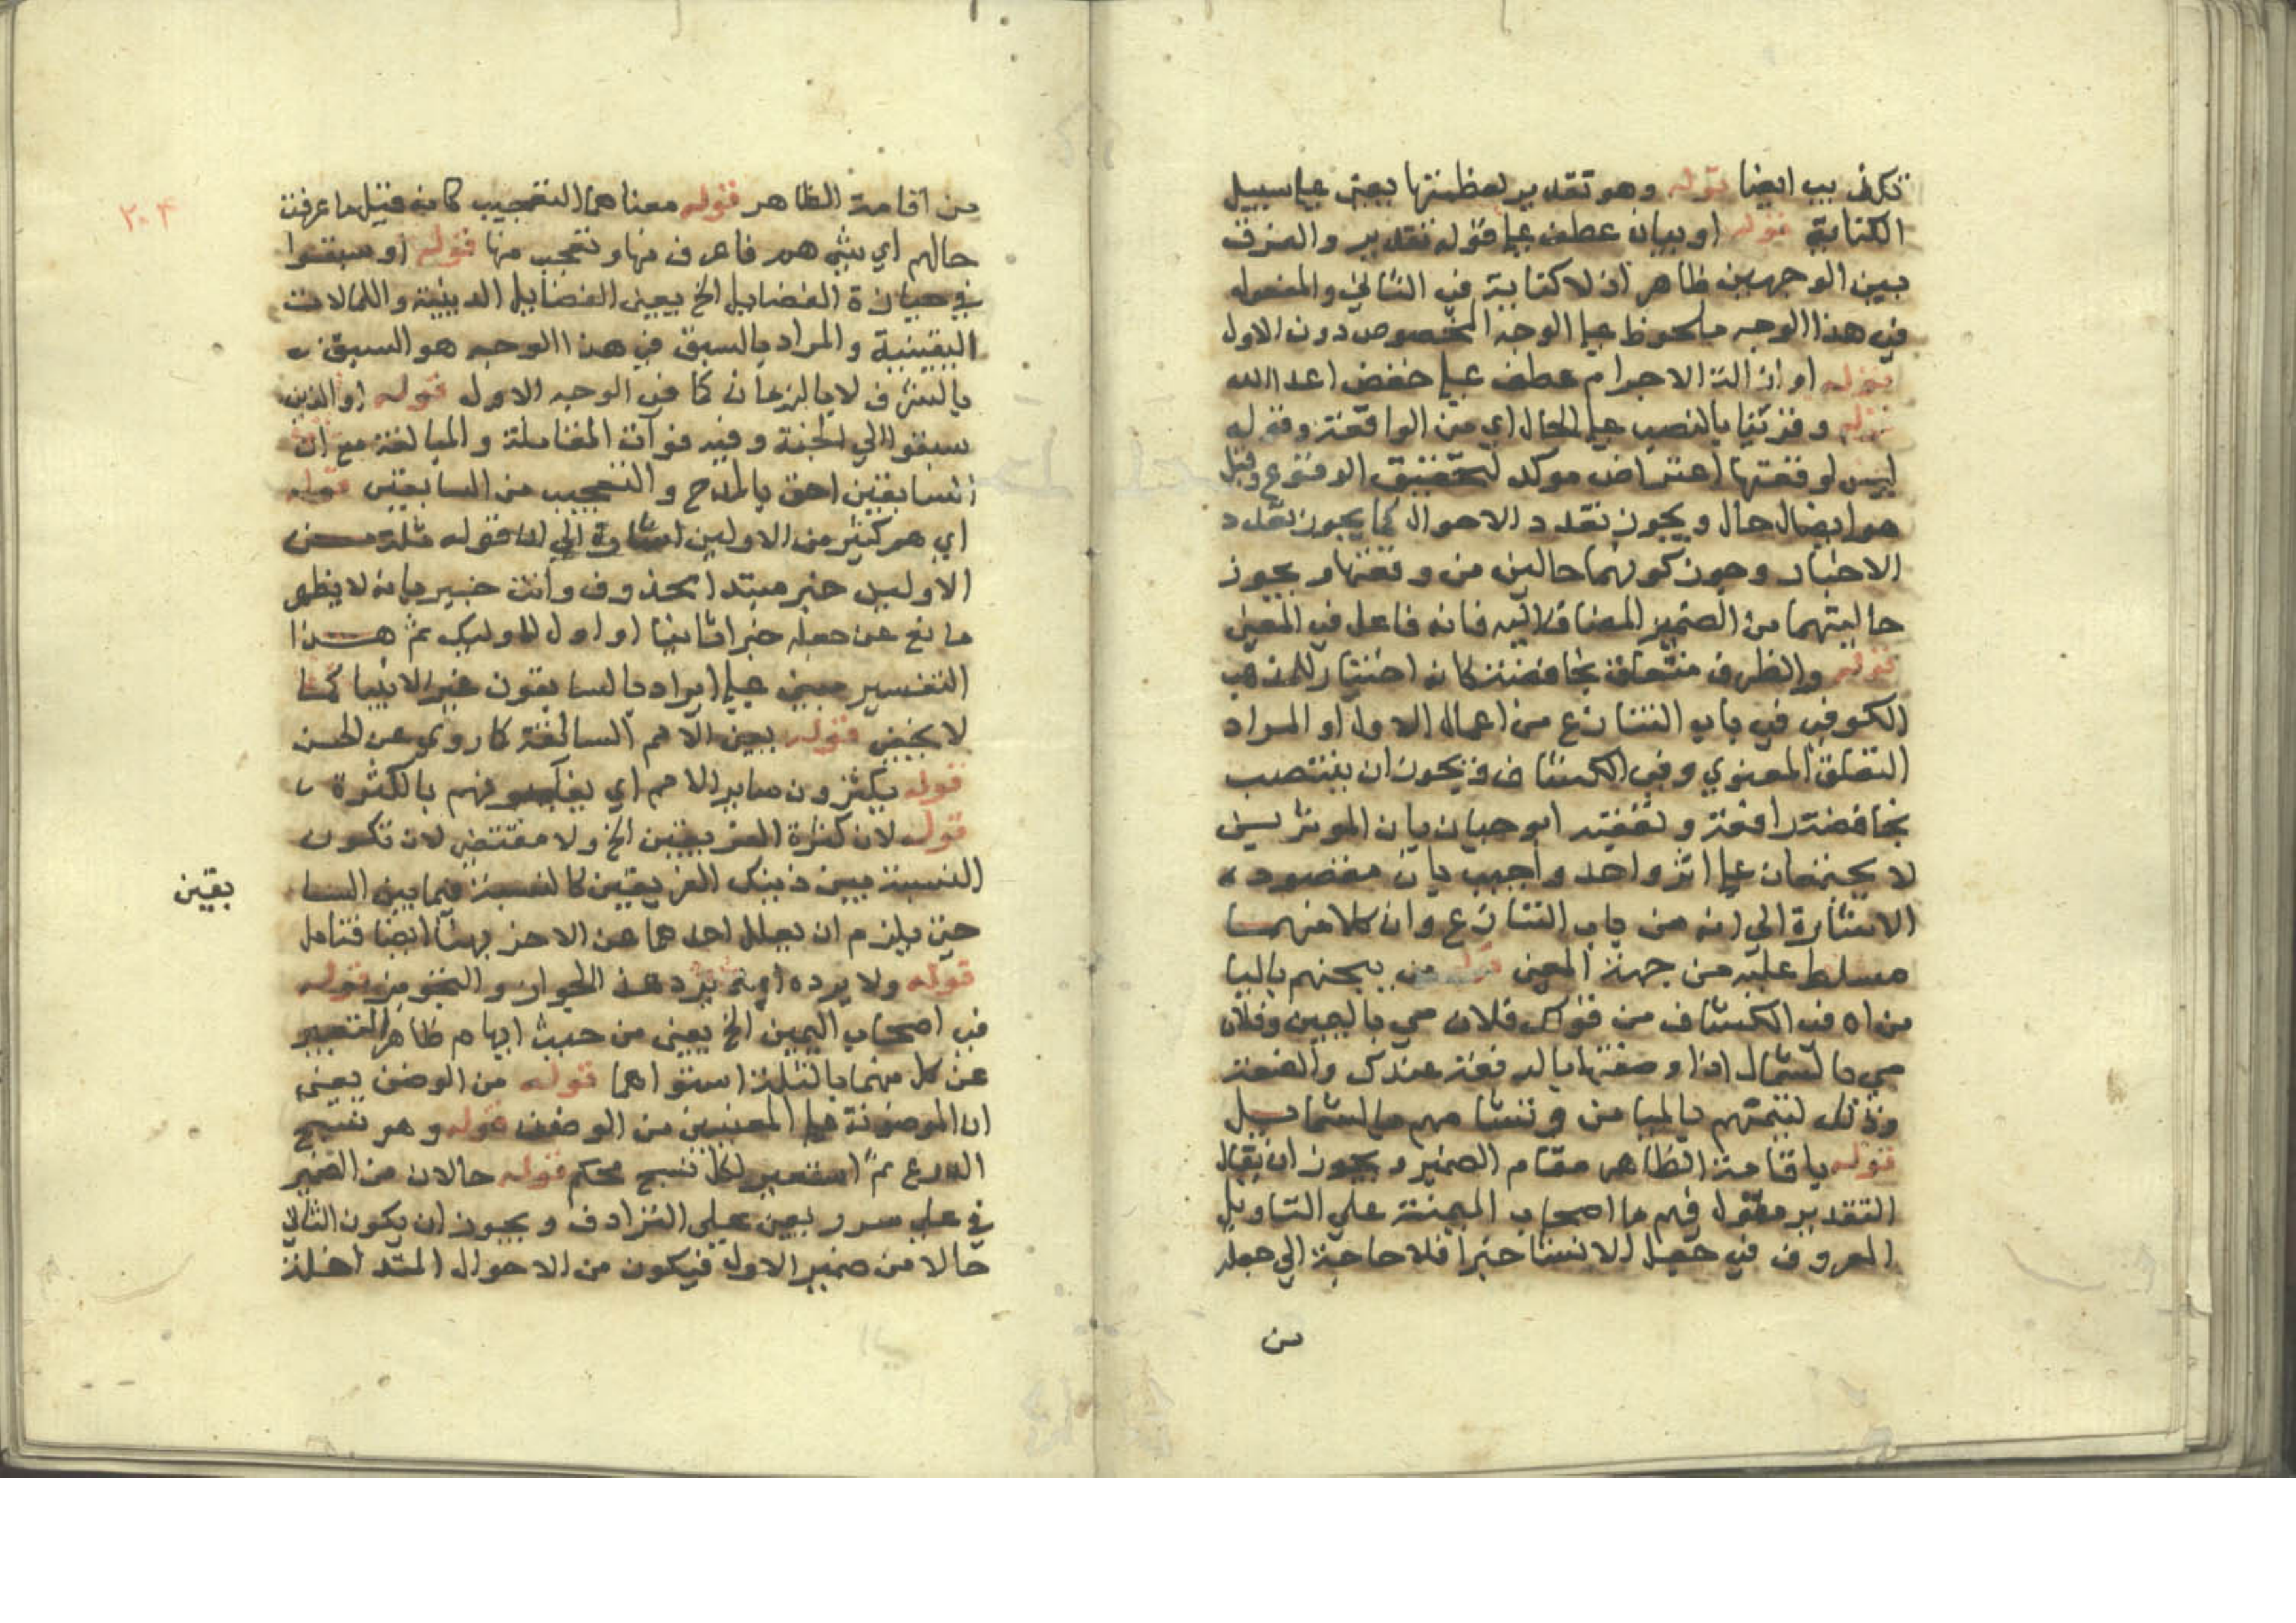 تكذيب ايضا قوله وهو تقدير لعظمتها يعني علي سبيل
الكناية قوله او بيان عطف علي قوله تقدير والفرق
بين الوجهين ظاهر اذ لا كناية في الثاني والمفعول
في هذا الوجه ملحوظ علي الوجه المخصوص دون الاول
قوله او ازالة الاجرام عطف علي خفض اعدا الله
قوله وقرئتا بالنصب علي الحال اي من الواقعة وقوله
ليس لوقعتها اعتراض موكد لتحقيق الوقوع وقيل
هو ايضا حال ويجوز تعدد الاحوال كما يجوز تعدد
الاخبار وجوز كونهما حالين من وقعتها ويجوز
حاليتهما من الضمير المضاف اليه فانه فاعل في المعني
قوله والظرف متعلق بخافضة كانه اختيار لمذهب
الكوفي في باب التنازع من اعمال الاول او المراد
التعلق المعنوي وفي الكشاف ويجوز ان ينتصب
بخافضة رافعة وتعقبه ابو حيان بان الموثرين
لا يجتمعان علي اثر واحد واجيب بان مقصوده
الاشارة الي انه من باب التنازع وان كلا منهما
مسلط عليه من جهة المعني قوله من تيمنهم باليا
من اه في الكشاف من قولك فلان مني باليمين وفلان
مني بالشمال اذا وصفتهما بالرفعة عندك والضعة
وذلك لتيمنهم بالميامن وتشامهم بالشمايل
قوله باقامة الظاهر مقام الضمير ويجوز ان يقال
التقدير مقول فيهم ما اصحاب الميمنة علي التاويل
المعروف في جعل الانشا خبرا فلا حاجة الي جعله
من
٢٠٤
من اقامة الظاهر قوله معناهما التعجيب كانه قيل ما عرفت
حالهم اي شي هم فاعرفها وتعجب منها قوله او سبقوا
في حيازة الفضايل الخ يعني الفضايل الدينية والكمالات
اليقينية والمراد بالسبق في هذا الوجه هو السبق
بالشرف لا بالزمان كما في الوجه الاول قوله او الذين
سبقوا الي الجنة وفيه فوات المقابلة والمبالغة مع ان
السابقين احق بالمدح والتعجيب من السابقين قوله
اي هم كثير من الاولين اشارة الي ان قوله ثلة من
الاولين خبر مبتدا محذوف وانت خبير بانه لا يظهر
مانع عن جعله خبرا ثانيا او اول لاوليك ثم هذا
التفسير مبني علي ايراد بالسابقون غير الانبيا كما
لا يخفي قوله يعني الامم السالفة كما روي عن الحسن
قوله يكثرون ساير الامم اي يغلبونهم بالكثرة
قوله لان كثرة الفريقين الخ ولا مقتضي لان تكون
النسبة بين ذينك الفريقين كالنسبة فيما بين السا
بقين
حتي يلزم ان يعلل احدهما عن الاخر بهذا ايضا فتامل
قوله ولا يرده اي لم يرد هذا الجواز والتجويز قوله
في اصحاب اليمين الخ يعني من حيث ايهام ظاهر التعبير
عن كل منهما بالثلة استواهما قوله من الوضن يعني
ان الموضونة علي المعنيين من الوضن قوله وهو نسج
الدرع ثم استعير لكل نسج محكم قوله حالان من الضمير
في علي سرر يعني علي الترادف ويجوز ان يكون الثاني
حالا من ضمير الاول فيكون من الاحوال المتداخلة